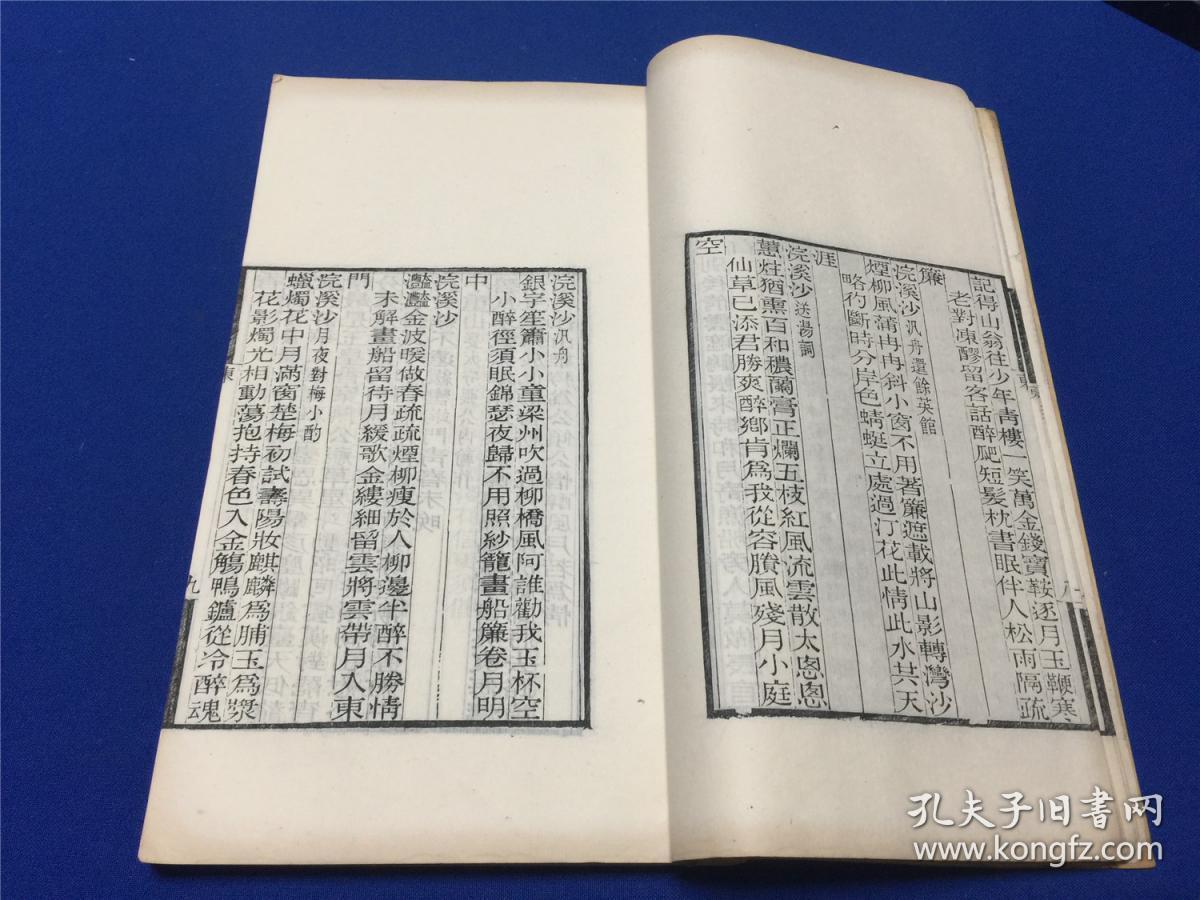 記得山翁往少年青樓一笑萬金錢寶鞍逐月玉鞭寒
老對凍醪留客話醉爬短髮枕書眠伴人松雨隔疏
簾
浣溪沙汎舟還餘英館
煙柳風蒲冉冉斜小窗不用著簾遮載將山影轉灣沙
略彴斷時分岸色蜻蜓立處過汀花此情此水共天
涯
浣溪沙送湯詞
蕙炷猶熏百和穠蘭膏正爛五枝紅風流雲散太悤悤
仙草已添君勝爽醉鄉肯爲我從容賸風殘月小庭
空
東
八
浣溪沙汎舟
銀字笙簫小小童梁州吹過柳橋風阿誰勸我玉杯空
小醉徑須眠錦瑟夜歸不用照紗籠畫船簾卷月明
中
浣溪沙
灩灩金波暖做春疏疏煙柳瘦於人柳邊半醉不勝情
未解畫船留待月緩歌金縷細留雲將雲帶月入東
門
浣溪沙月夜對梅小酌
蠟燭花中月滿窗楚梅初試壽陽妝麒麟爲脯玉爲漿
花影燭光相動蕩抱持春色入金觴鴨鑪從冷醉魂
東
九
孔夫子旧书网
www.kongfz.com